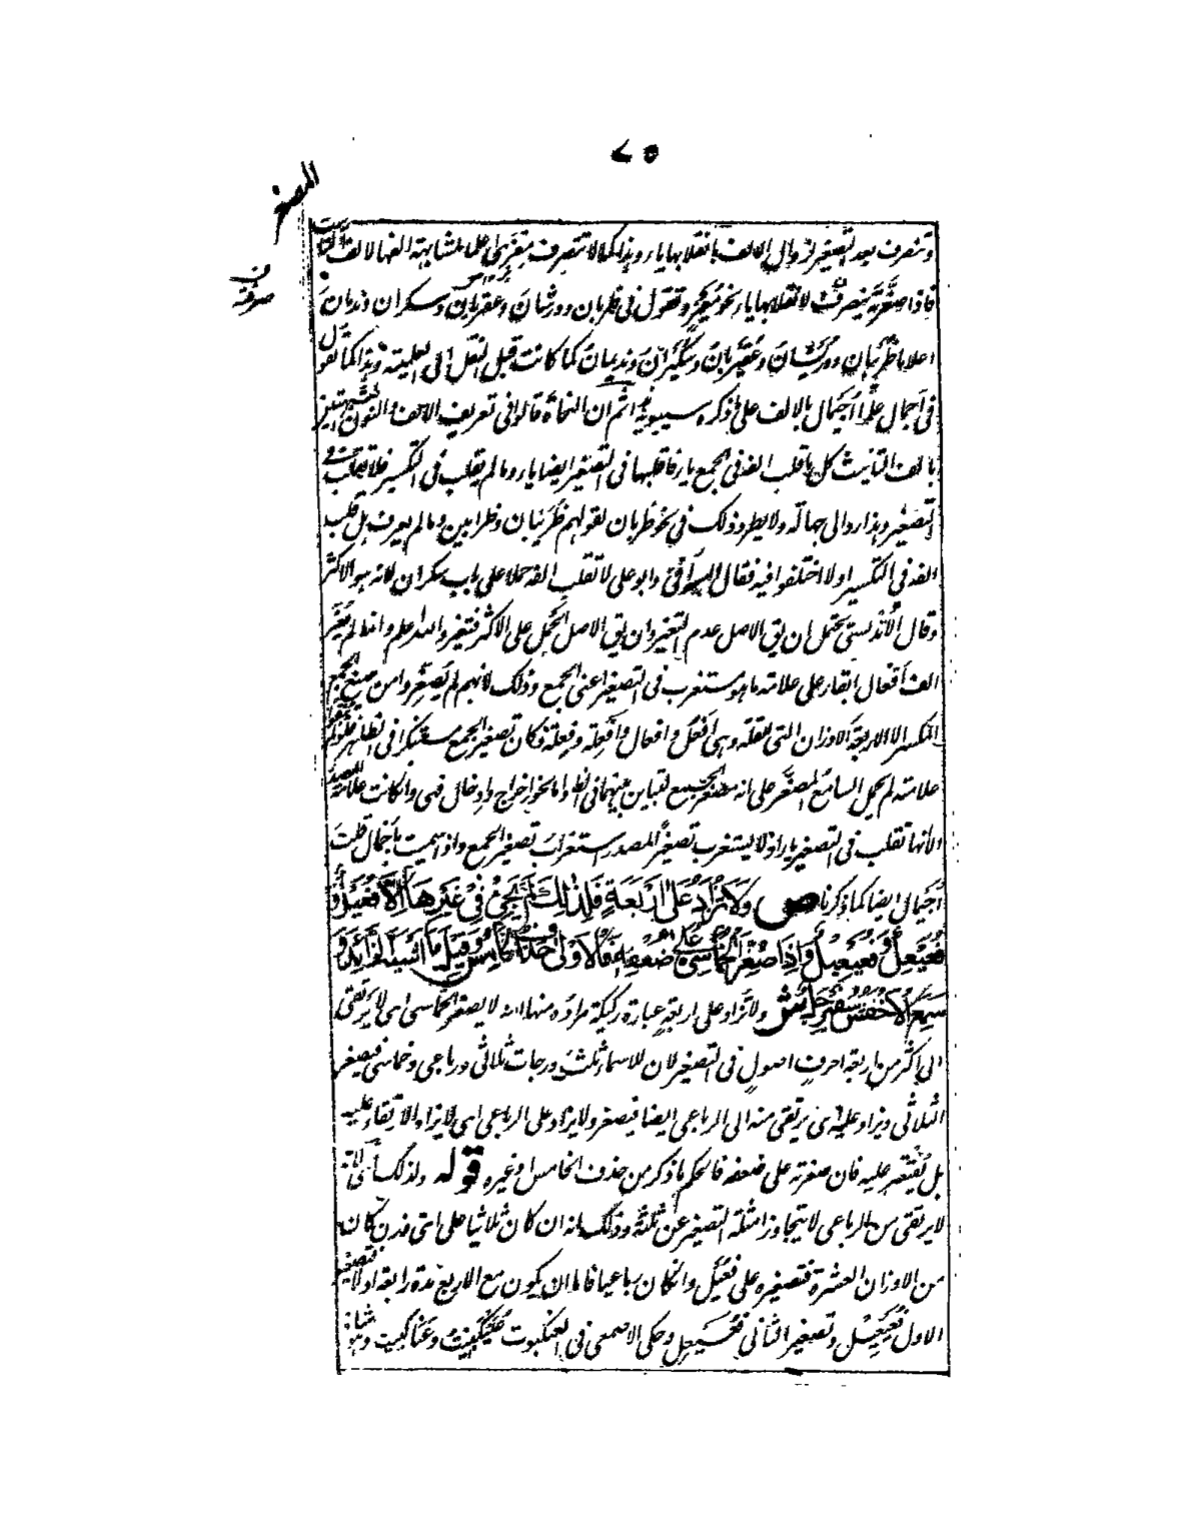 ٧٥
المصغر
وتنصرف بعد التصغير لزوال الالف بانقلابها ياء وهذا كما لا تنصرف معزى علما لمشابهة الفها لالف التانيث
فاذا صغرته ينصرف لانقلابها ياء نحو معيز وتقول فى ظربان وورشان وعقربان وسكران وندمان
صرفته
اعلاما ظريبان ووريشان وعقيربان وسكيران ونديمان كما كانت قبل النقل الى العلمية وهذا كما تقول
فى اجمال علما اجيمال بالالف على ما ذكره سيبويه ثم ان النحاة قالوا فى تعريف الالف والنون المشبهتين
بالف التانيث كل ما قلب الفه فى الجمع ياء فاقلبها فى التصغير ايضا ياء وما لم يقلب فى التكسير فلا تقلب فى
التصغير وهذا رد الى جهالة ولا يطرد ذلك فى نحو ظربان لقولهم ظريبان وظرابين وما لم يعرف هل قلب
الفه فى التكسير او لا اختلفوا فيه فقال السيرافى وابو على لا تقلب الفه حملا على باب سكران لانه هو الاكثر
وقال الاندلسى يحتمل ان يق الاصل عدم التغير وان يق الاصل الحمل على الاكثر فتغير والله اعلم وانما لم تغير
الف افعال ابقاء على علامة ما هو مستغرب فى التصغير اعنى الجمع وذلك لانهم لم يصغروا من صيغ الجمع
المكسر الا الاربعة الاوزان التى للقلة وهى افعل وافعال وافعلة وفعلة فكان تصغير الجمع مستنكرا فى الظاهر فلو لم يبقوا
علامته لم يحمل السامع المصغر على انه مصغر الجمع لتباين بينهما فى الظ واما نحو اخراج وادخال فهى وانكانت علامة المصدر
الا انها تقلب فى التصغير ياء اذ لا يستغرب تصغير المصدر استغراب تصغير الجمع واذا سميت باجمال قلت
اجيمال ايضا كما ذكرنا ص وَلَا يُزَادُ عَلَى اَرْبَعَةٍ فَلِذٰلِكَ لَمْ يَجِئْ فِى غَيْرِهَا اِلَّا فُعَيْلٌ وَ
فُعَيْعِلٌ وَفُعَيْعِيلٌ وَاِذَا صُغِّرَ الْخُمَاسِىُّ عَلَى ضُعْفِهِ فَالْاَوْلَى حَذْفُ الْخَامِسِ وَقِيلَ مَا اَشْبَهَ الزَّائِدَ وَ
سَمِعَ الْاَخْفَشُ سُفَيْرِجَلٌ ش ولا تزاد على اربعة عبارة ركيكة مراده منها انه لا يصغر الخماسى اى لا يرتقى
الى اكثر من اربعة احرف اصول فى التصغير لان للاسماء ثلث درجات ثلاثى ورباعى وخماسى فيصغر
الثلاثى ويزاد عليه اى يرتقى منه الى الرباعى ايضا فيصغر ولا يزاد على الرباعى اى لا يزاد الارتقاء عليه
بل يقتصر عليه فان صغرته على ضعفه فالحكم ما ذكر من حذف الخامس او غيره قوله ولذلك اى لانه
لا يرتقى من الرباعى لا يتجاوز امثلة التصغير عن ثلثة وذلك انه ان كان ثلاثيا على اى وزن كان
من الاوزان العشرة فتصغيره على فعيل وانكان رباعيا فاما ان يكون مع الاربع مدة رابعة اولا فتصغير
الاول فعيعيل وتصغير الثانى فعيعل وحكى الاصمعى فى عنكبوت عنيكبيت وعناكبيت وهو شاذ